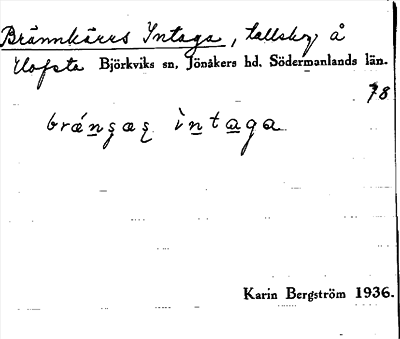 Brännkärrs Intaga, tallskog å
Hofsta Björkviks sn, Jönåkers hd. Södermanlands län.
78
intaga
Karin Bergström 1936.